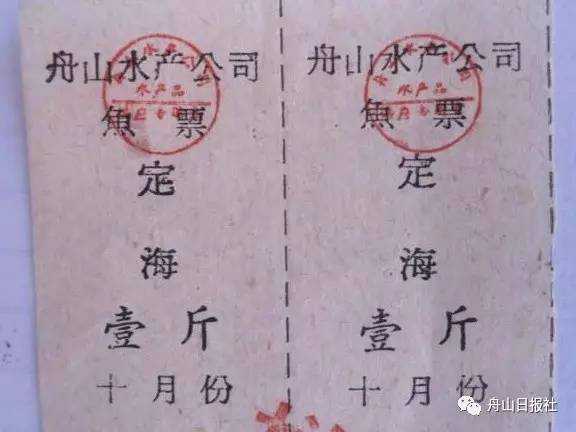 舟山水产公司
魚 票
定
海
壹 斤
十月份
舟山水产公司
魚 票
定
海
壹 斤
十月份
水产品
水产品
舟山日报社